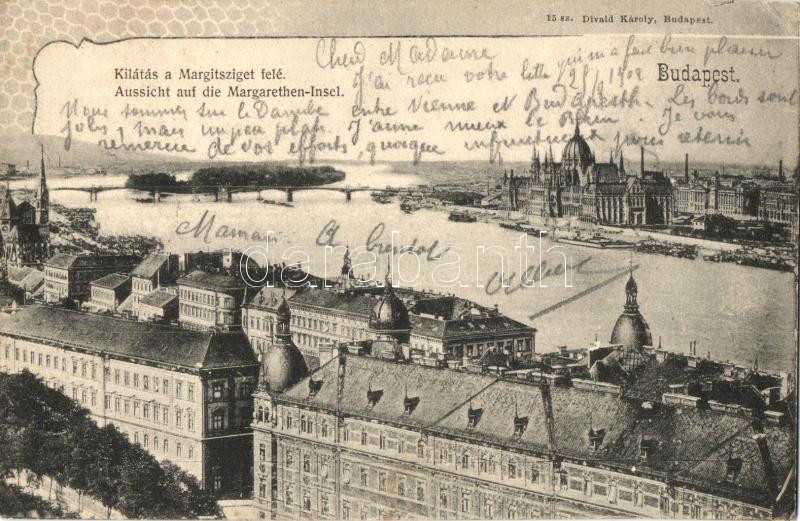 15 sz. Divald Károly, Budapest.
Kilátás a Margitsziget felé.
Aussicht auf die Margarethen-Insel.
Budapest.
Cher Madame qui m'a fait bien plaisir
J'ai recu votre lettre 1902
Nous sommes sur le Danube entre Vienne et Budapesth. Les bords sont
jolis, mais un peu plats. J'aime mieux le Rhin. Je vous
remercie de vos efforts, quoique infructueux pour retenir
Maman. A bientot
Albert
darabanth